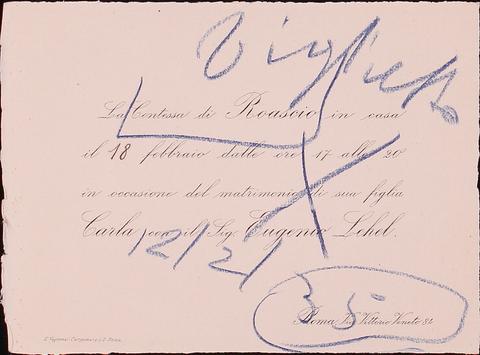 Biglietto
La Contessa di Roascio in casa
il 18 febbraio dalle ore 17 alle 20
in occasione del matrimonio di sua figlia
Carla con il Sig. Eugenio Lehel.
12/2/
35
Roma, Via Vittorio Veneto 84